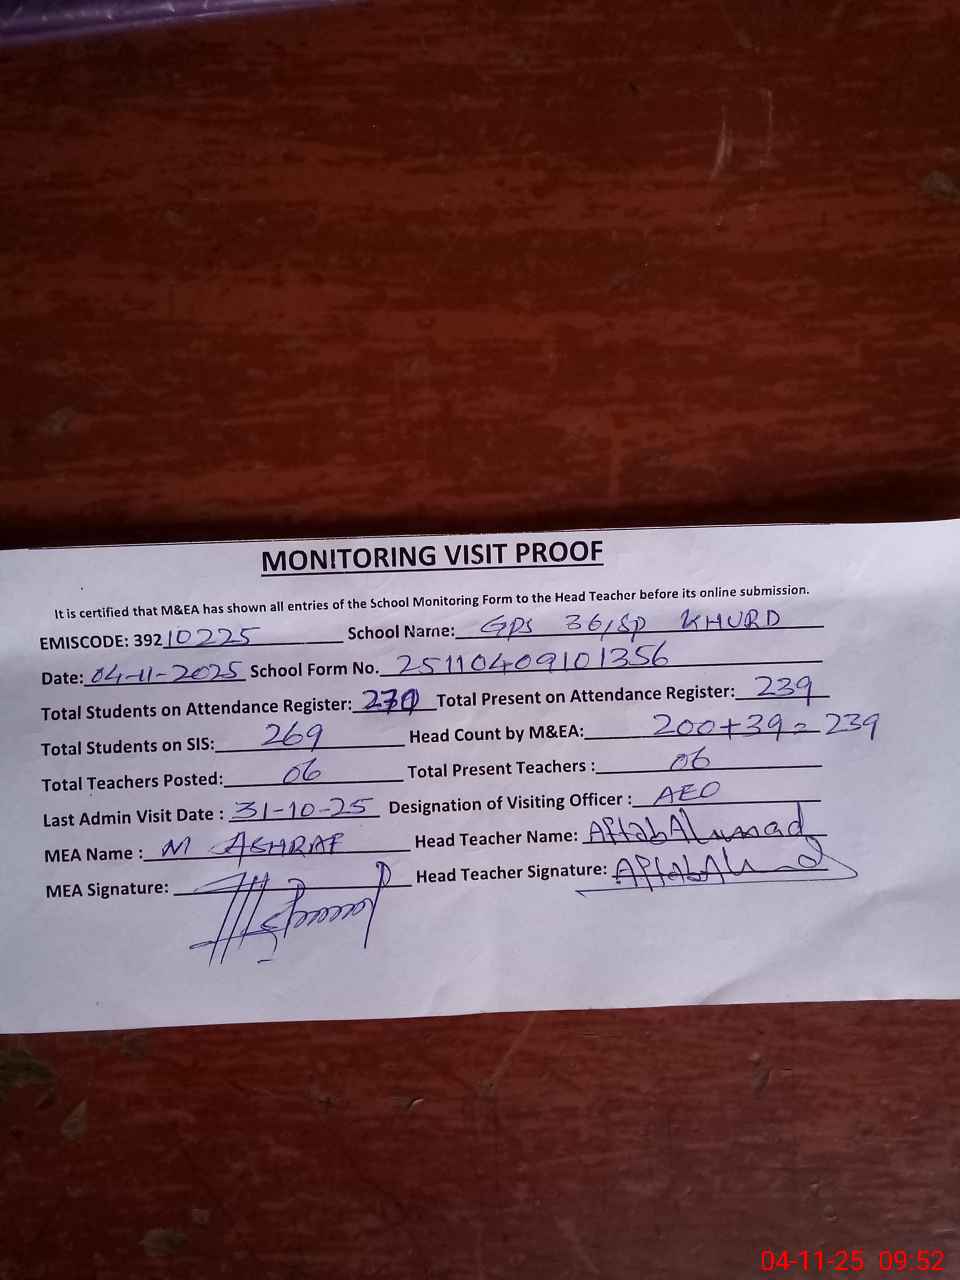 MONITORING VISIT PROOF
It is certified that M&EA has shown all entries of the School Monitoring Form to the Head Teacher before its online submission.
EMISCODE: 39210225 School Name: GPS 36/SP KHURD
Date: 04-11-2025 School Form No. 25110409101356
Total Students on Attendance Register: Total Present on Attendance Register: 239
Total Students on SIS: 269 Head Count by M&EA: 200+39=239
Total Teachers Posted: 06 Total Present Teachers : 06
Last Admin Visit Date : 31-10-25 Designation of Visiting Officer : AEO
MEA Name : M ASHRAF Head Teacher Name: Aftab Ahmad
MEA Signature: Head Teacher Signature: Aftab Ahmad
04-11-25 09:52